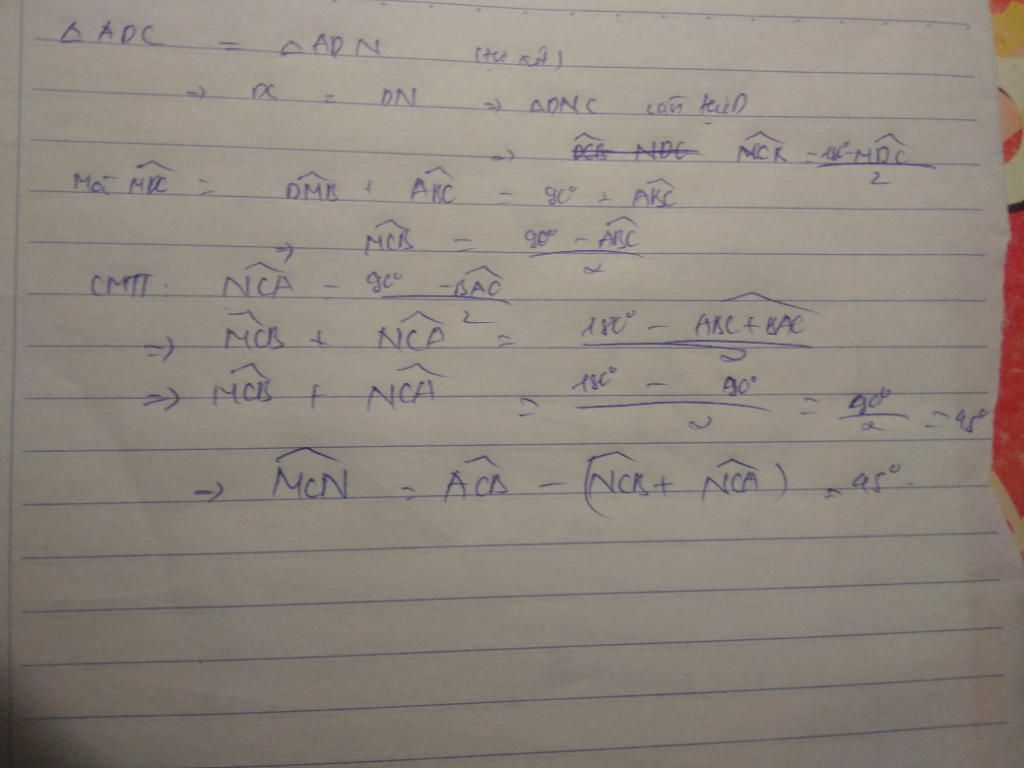 △ADC = △ADN
⇒ DC = DN ⇒ △DNC cân tại D
⇒ MCB = (180° - MDC)/2
Mà MDC = DMB + ABC = 90° + ABC
⇒ MCB = (90° - ABC)/2
CMTT: NCA = (90° - BAC)/2
⇒ MCB + NCA = (180° - ABC + BAC)/2
⇒ MCB + NCA = (180° - 90°)/2 = 90°/2 = 45°
⇒ MCN = ACB - (NCB + NCA) = 45°.